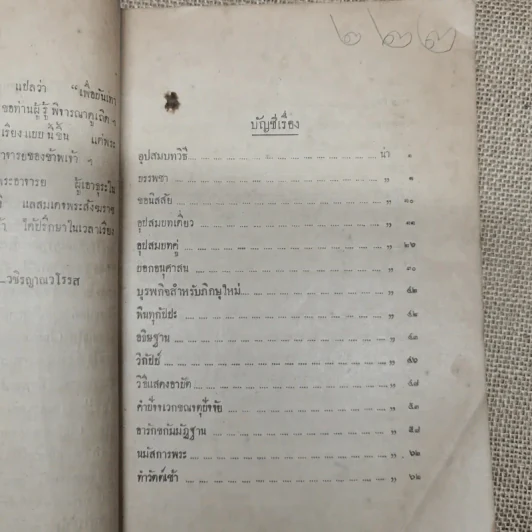 แปลว่า "เพื่อยันเทา
ขอท่านผู้รู้ พิจารณาดูเถิด ฯ
เรียงแยยนี้ขึ้น แต่พระ
าจารยของข้าพเจ้า ฯ
ระอาจารย ผู้เอาธุระใน
แลสมเดจพระสังฆราช
ได้ปรึกษาในเวลาเรียง
—วชิรญาณวโรรส
๒๒๓
บัญชีเรื่อง
อุปสมบทวิธี น่า ๑
บรรพชา " ๑
ขอนิสสัย " ๑๐
อุปสมบทเดี่ยว " ๑๑
อุปสมบทคู่ " ๒๖
บอกอนุศาสน " ๓๐
บุรพกิจสำหรับภิกษุใหม่ " ๕๒
พินทุกัปปะ " ๕๒
อธิษฐาน " ๕๓
วิกัปป์ " ๕๖
วิธีแสดงอาบัติ " ๕๗
คำยิ่จจเวกขณจตุยิ่จจัย
อารักขกัมมัฏฐาน
นมัสการพระ " ๖๒
ทำวัตต์เช้า " ๖๒